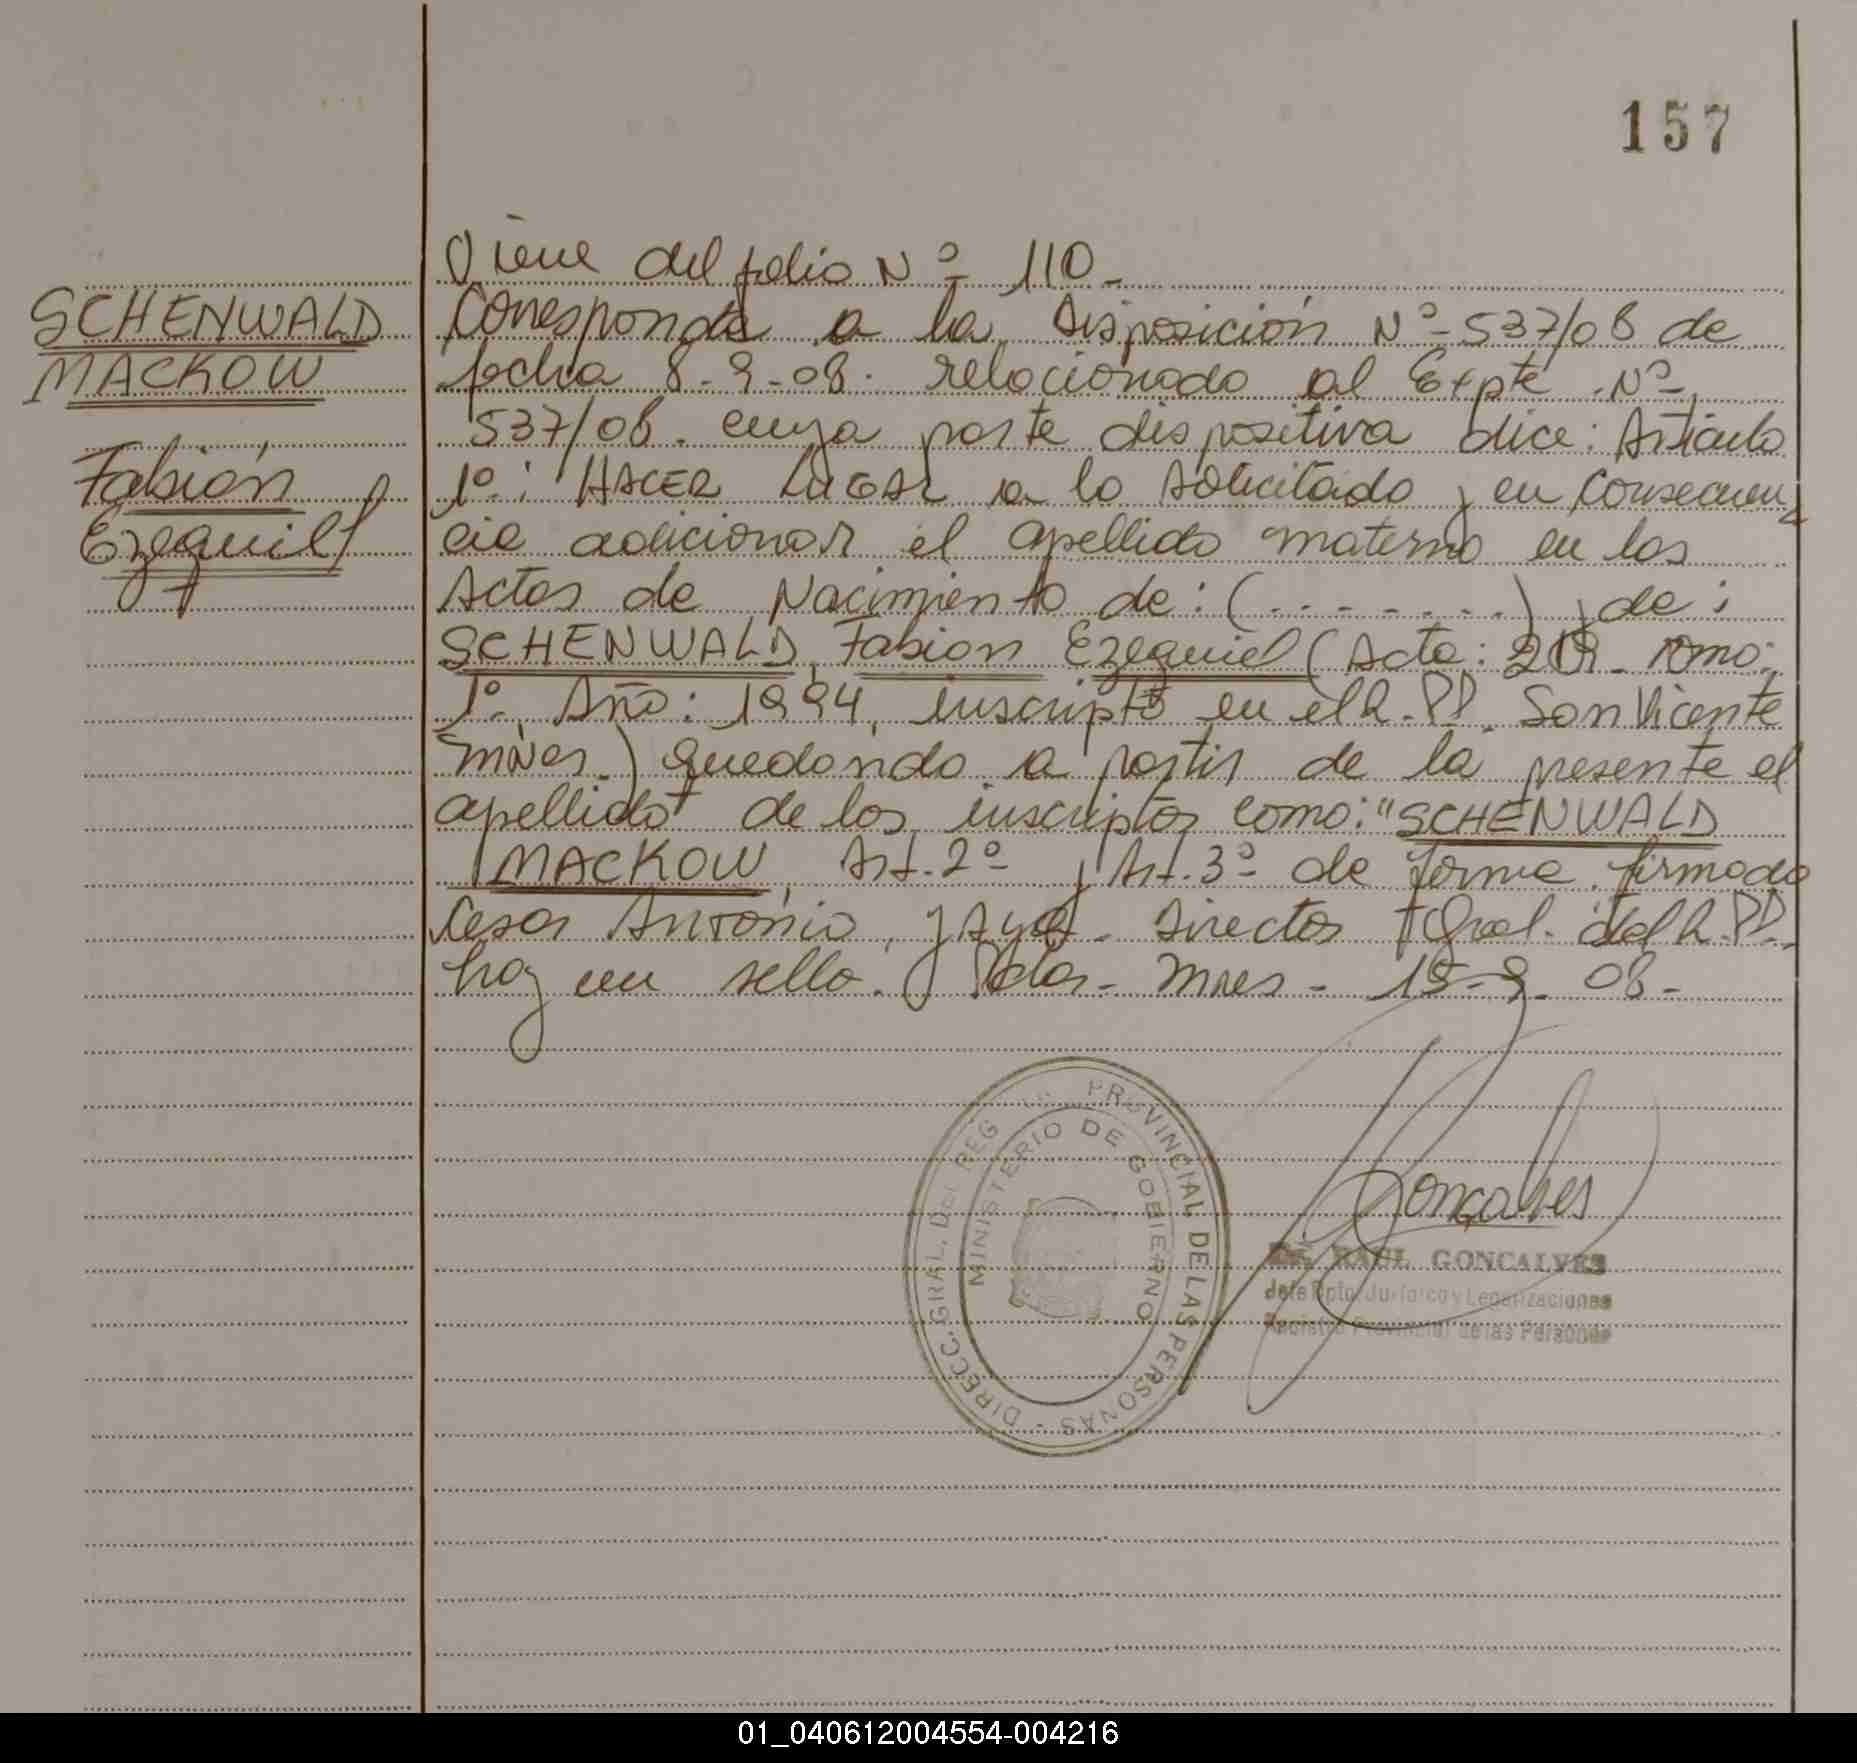 157
Viene del folio Nº 110-
SCHENWALD
MACKOW
Fabián
Ezequiel
Corresponde a la Disposición Nº 537/08 de
fecha 8-9-08. relacionado al Expte. Nº
537/08. cuya parte dispositiva dice: Artículo
1º: HACER LUGAR a lo solicitado y en consecuen
cia adicionar el apellido materno en las
Actas de Nacimiento de: (. - - - - - - .) y de:
SCHENWALD, Fabián Ezequiel (Acta: Tomo:
1º. Año: 1994, inscripto en el R.PP. San Vicente
Mnes.) quedando a partir de la presente el
apellido de los inscriptos como: "SCHENWALD
MACKOW, Art. 2º y Art. 3º de forma. firmado
Cesar Antonio, Director Gral. del R.PP.
hay un sello. Pdas- Mnes- 15-9-08-
Goncalves
DR. RAUL GONCALVES
Jefe Dpto. Jurídico y Legalizaciones
Registro Provincial de las Personas
DIRECC. GRAL. DEL REG PROVINCIAL DE LAS PERSONAS -
MINISTERIO DE GOBIERNO
01_040612004554-004216